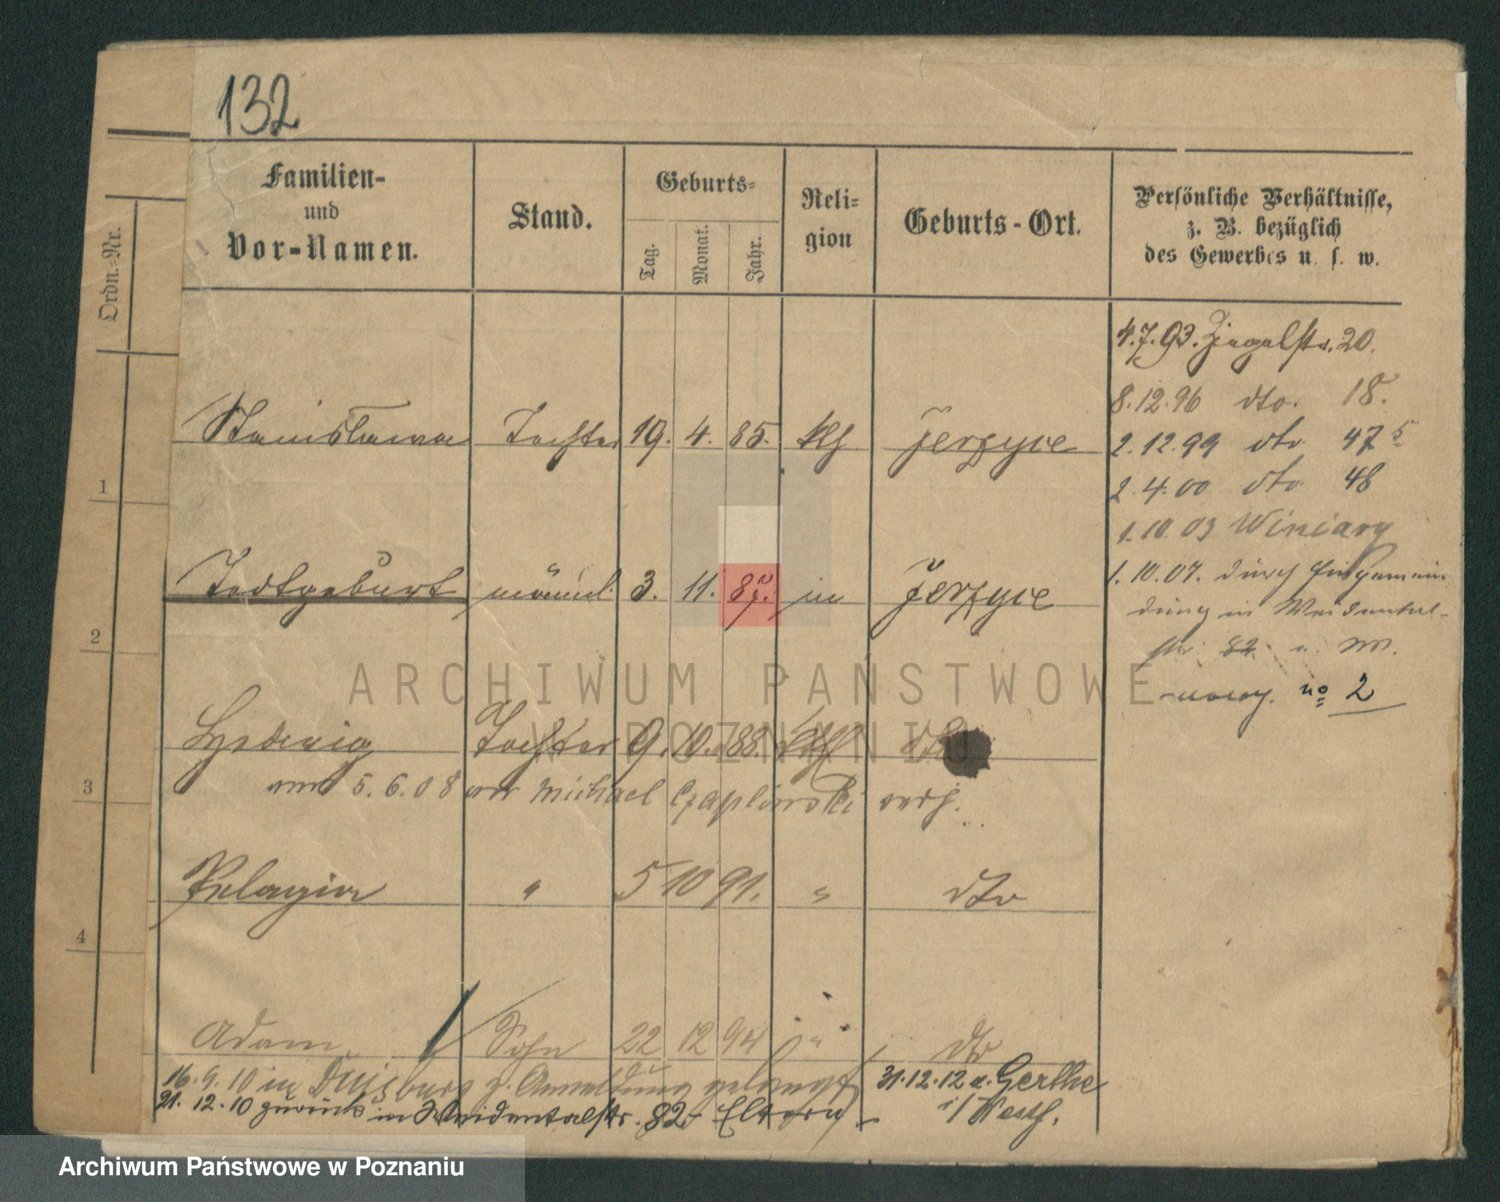 132
Familien-
und
Vor-Namen.
Stand.
Geburts-
Tag.
Monat.
Jahr.
Reli-
gion
Geburts-Ort.
Persönliche Verhältnisse,
z. B. bezüglich
des Gewerbes u. s. w.
Ordn.-Nr.
4.7.93. Ziegelstr. 20.
8.12.96 dto. 18.
2.12.99 dto 47
2.4.00 dto 48
1.10.03 Winiary
1.10.07. durch Eingemein-
dung in Weidental-
str. 82
no 2
Stanisława Tochter 19. 4. 85. kth Jerzyce
1
Todtgeburt männl. 3. 11. Jerzyce
2
Hedwig Tochter 9. 10. 88. kth dto
am 5.6.08 an Michael Czaplinski verh.
3
Pelagia " 5 10 91. " dto
4
Adam Sohn 22 12 94 " dto
16.9.10 in Duisburg z. Anmeldung gelangt
31.12.12 n. Gerthe
i/Westf.
21.12.10 zurück in Weidentalstr. 82 Eltern
ARCHIWUM PAŃSTWOWE
W POZNANIU
Archiwum Państwowe w Poznaniu